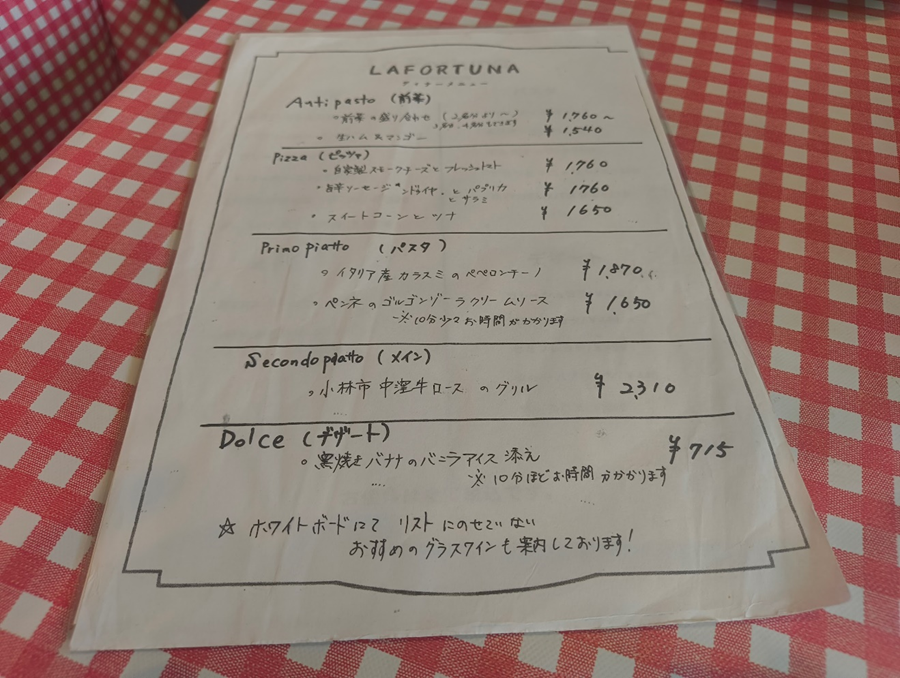 LAFORTUNA
ディナーメニュー
Antipasto (前菜)
◦前菜の盛り合わせ (2名様より〜) ¥1,760〜
◦生ハムとマンゴー ¥1,540
Pizza (ピッツァ)
◦自家製スモークチーズとフレッシュトマト ¥1,760
とパプリカ ¥1760
とサラミ
◦スイートコーンとツナ ¥1650
Primo piatto (パスタ)
◦イタリア産カラスミのペペロンチーノ ¥1,870
◦ペンネのゴルゴンゾーラクリームソース ¥1,650
※10分少々お時間がかかります
Secondo piatto (メイン)
◦小林市中窪牛ロースのグリル ¥2,310
Dolce (デザート)
◦窯焼きバナナのバニラアイス添え ¥715
※10分ほどお時間がかかります
☆ ホワイトボードにて リストにのせていない
おすすめのグラスワインも案内しております!